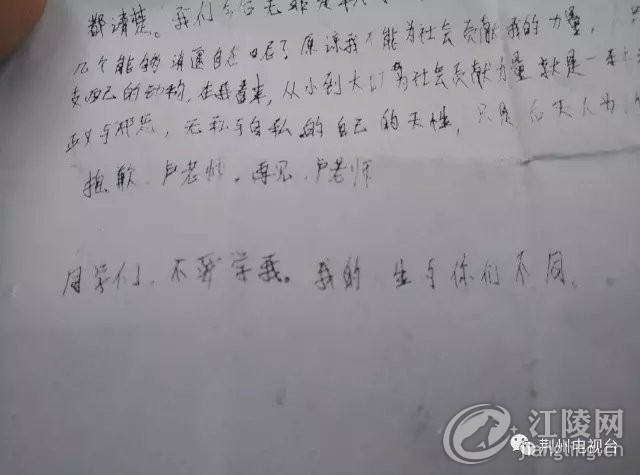 都清楚。我们
几个能够 自己 呢？原谅我不能为社会贡献我的力量，
自己的动物，在我看来，从小到大 为社会贡献力量就是一
正义与邪恶，无私与自私的自己的天性，只是后天人为
抱歉．卢老师。再见．卢老师
同学们、不要学我。我的 生与你们不同。
江陵网
荆州电视台
jiangling.cn